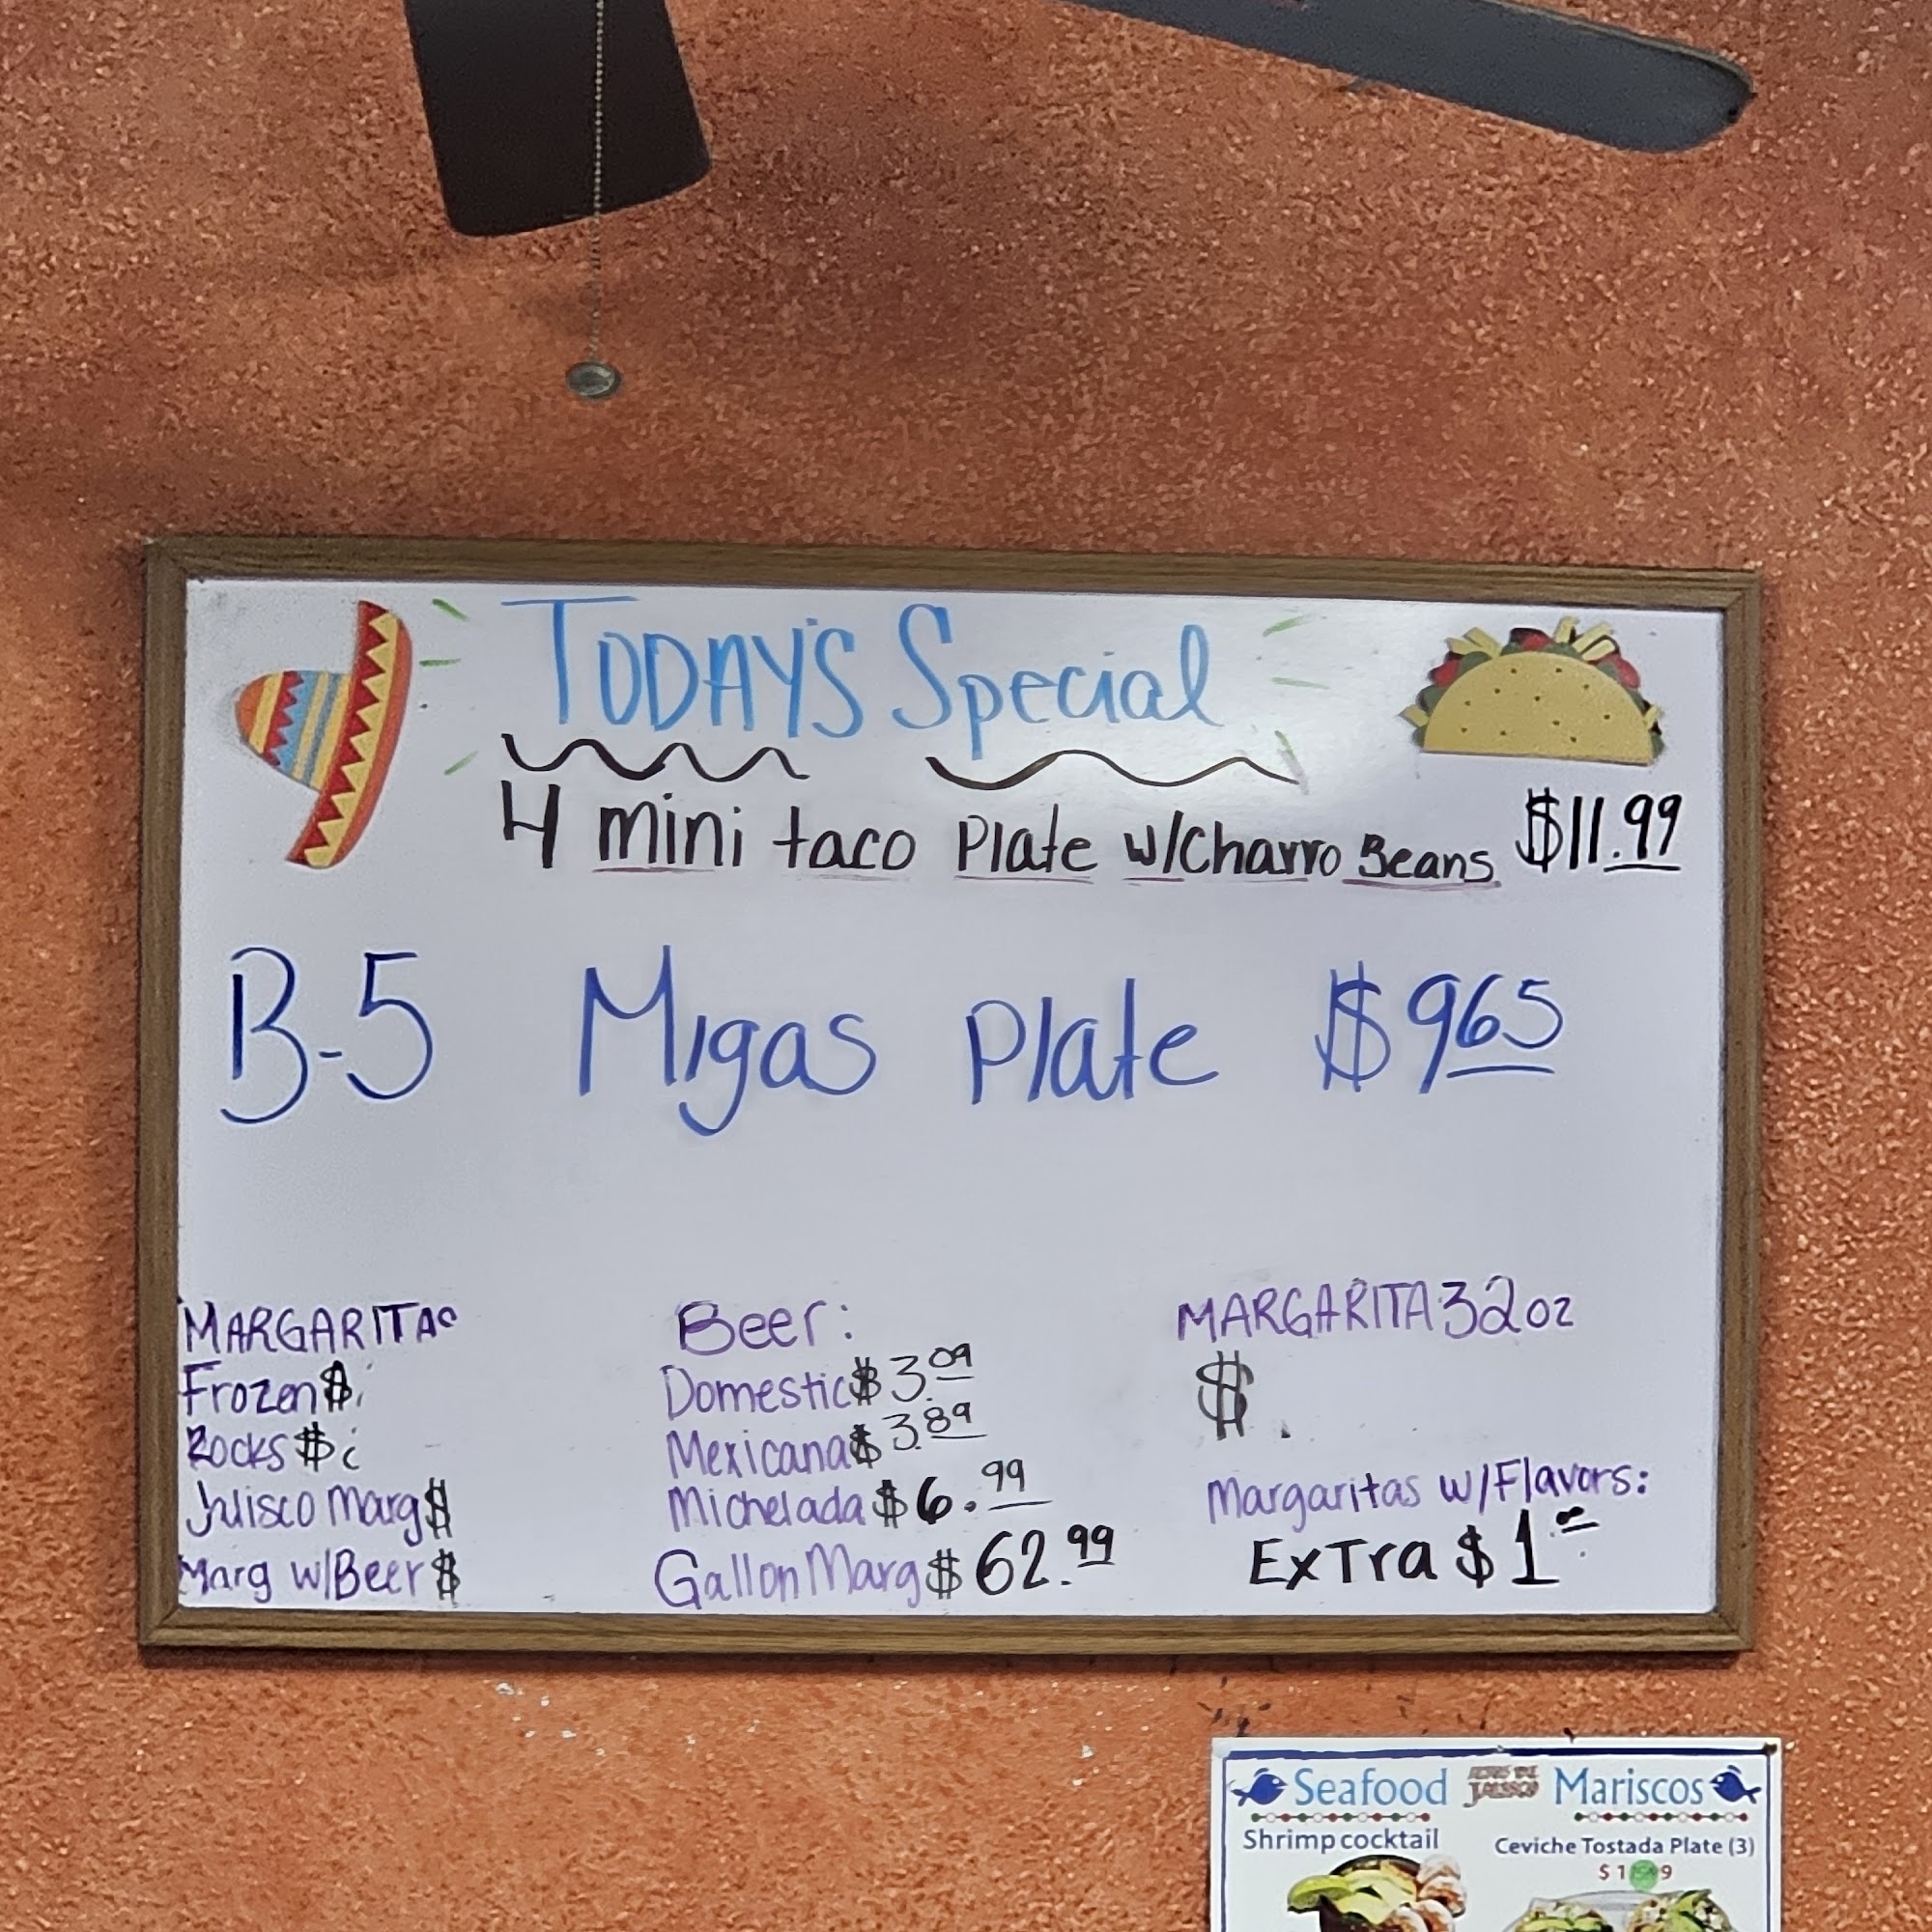 TODAY'S Special
4 mini taco Plate w/Charro Beans $11.99
B-5 Migas Plate $9.65
MARGARITAS
Frozen $
Rocks $
Jalisco Marg $
Marg w/Beer $
Beer:
Domestic $3.09
Mexicana $3.89
Michelada $6.99
Gallon Marg $62.99
MARGARITA 32oz
$ .
Margaritas w/Flavors:
Extra $1
Seafood Mariscos
Shrimp cocktail
Ceviche Tostada Plate (3)